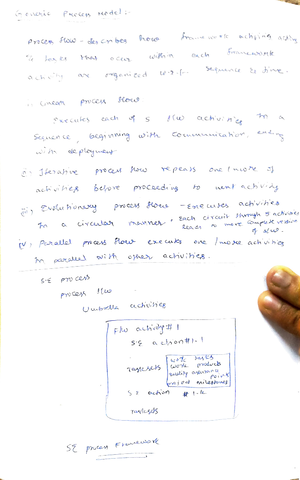 Generic Process Model:-
process flow - describes how framework activity
& tasks that occur within each framework
activity are organized w.r.t. sequence & time.
Linear process flow
Executes each of 5 f/w activities in a
sequence, beginning with communication, ending
with deployment.
Iterative process flow repeats one/more of
activities before proceeding to next activity
Evolutionary process flow - Executes activities
in a circular manner, each circuit through 5 activities
leads to more complete version
of s/w.
Parallel process flow executes one/more activities
in parallel with other activities.
S.E process
process f/w
Umbrella activities
F/w activity # 1
S.E action # 1.1
Task sets
work tasks
work products
quality assurance
point
project milestones
S.E action # 1.k
Task sets
SE process Framework